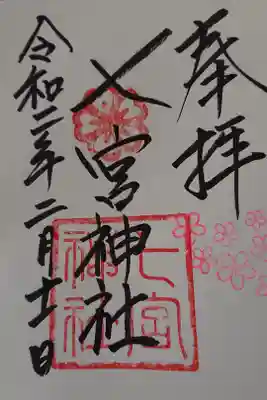 奉拝
七宮神社
令和二年二月十一日
七宮
神社